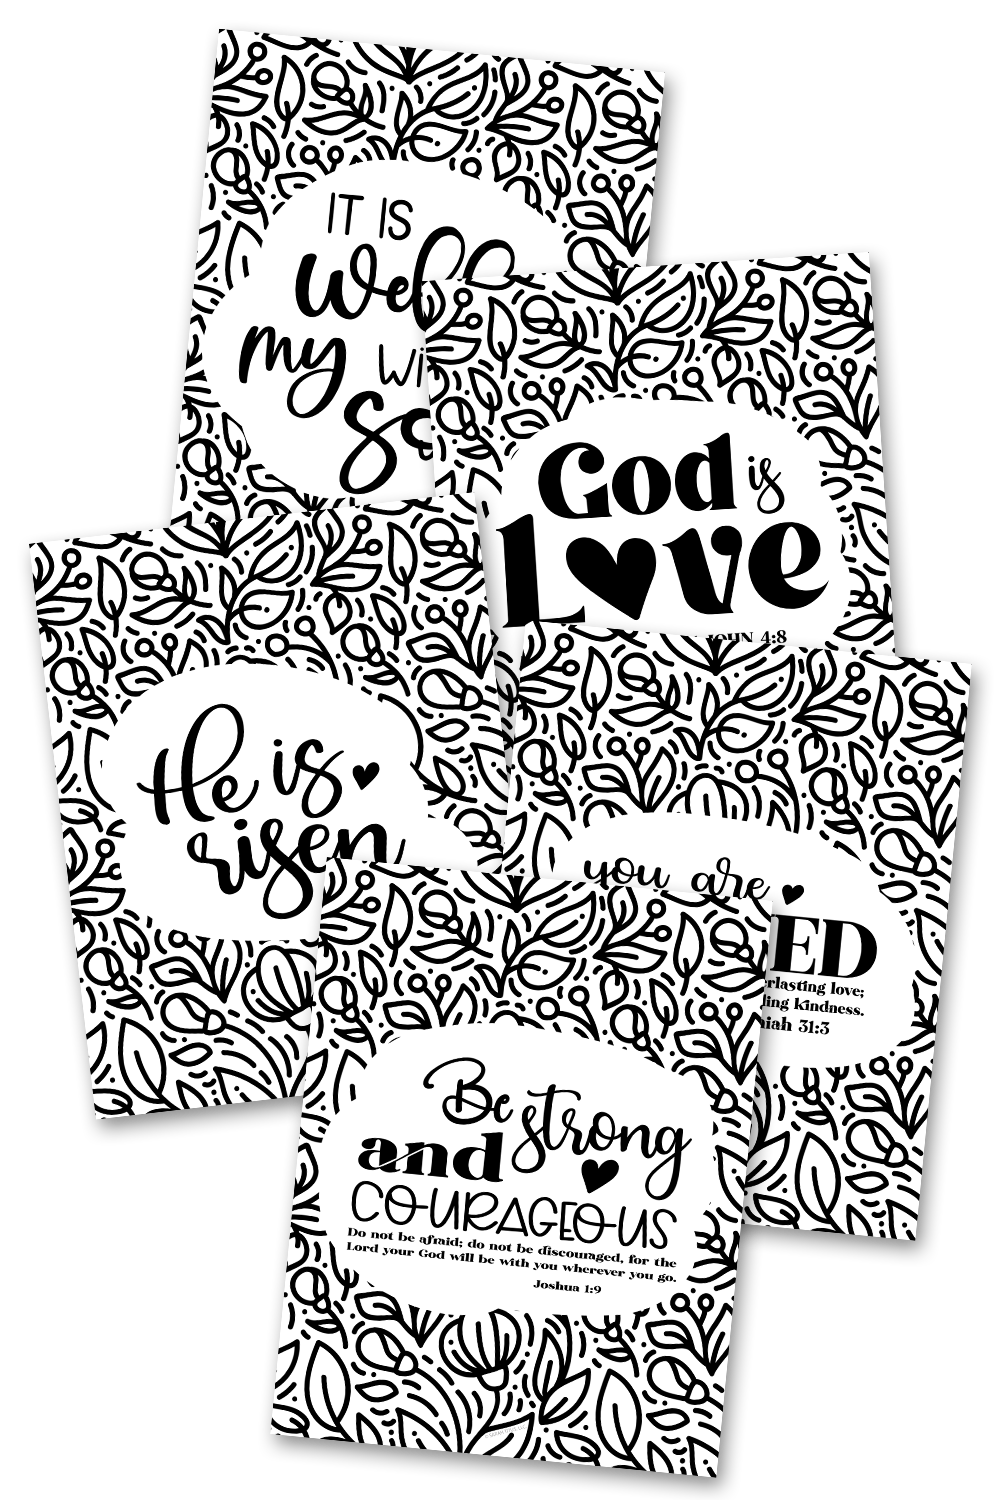 IT IS
well
my wi
so
God is
Love
JOHN 4:8
He is
risen
you are
ED
erlasting love;
ding kindness.
iah 31:3
Be strong
and
COURAGEOUS
Do not be afraid; do not be discouraged, for the
Lord your God will be with you wherever you go.
Joshua 1:9